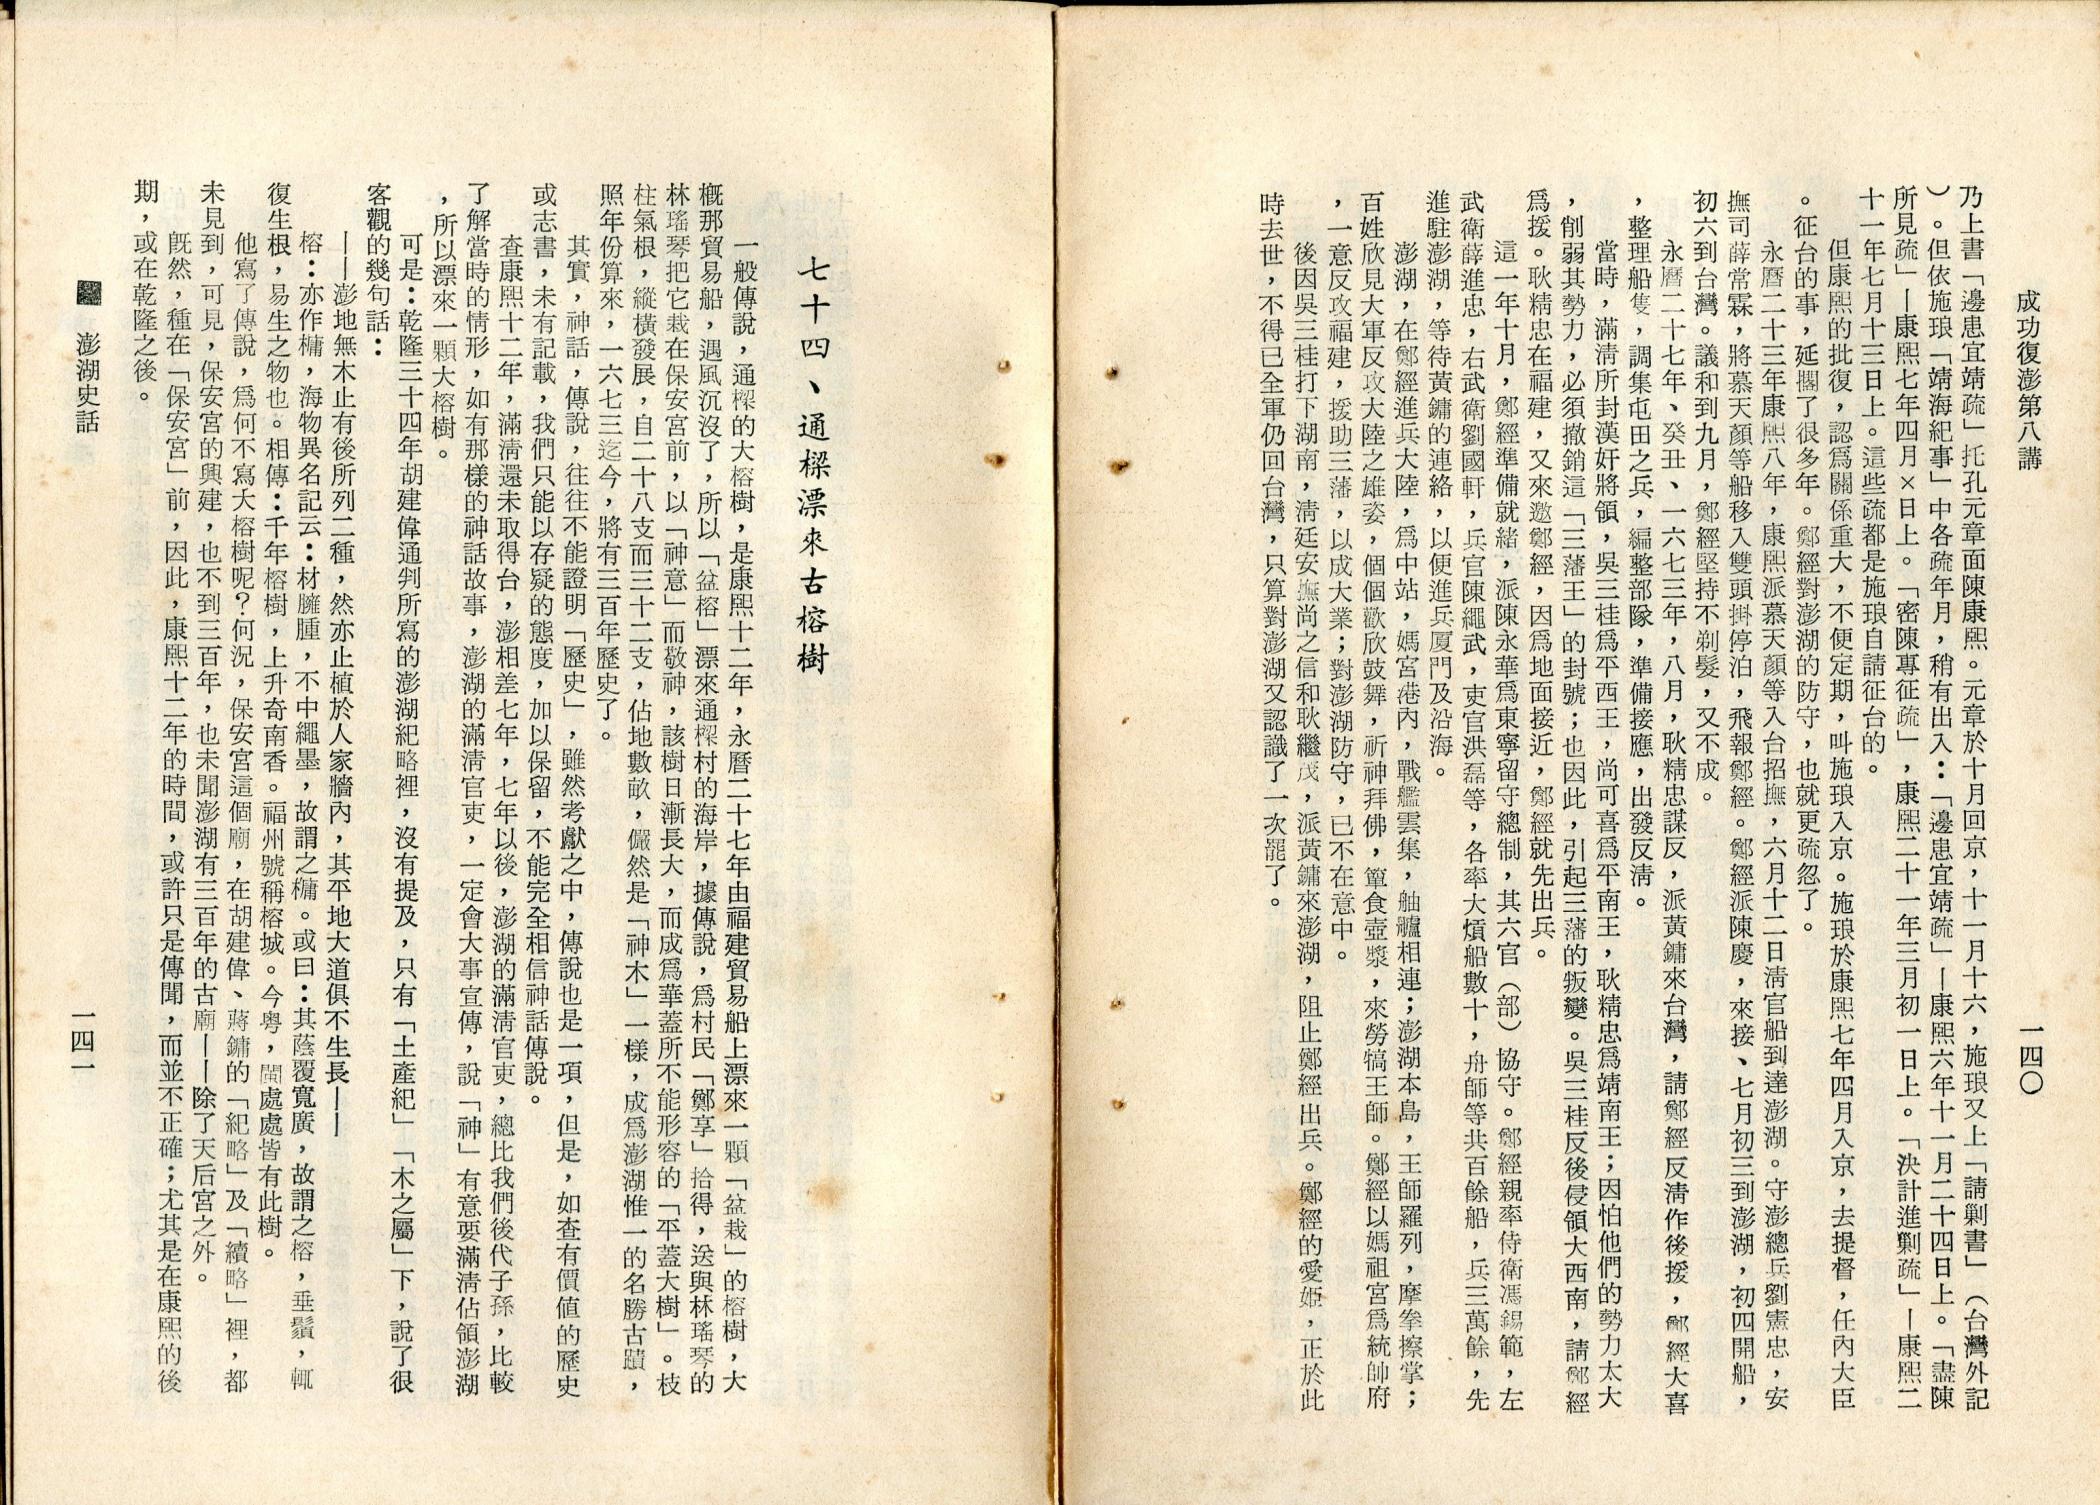 成功復澎第八講
一四〇
乃上書「邊患宜靖疏」托孔元章面陳康熙。元章於十月回京，十一月十六，施琅又上「請剿書」（台灣外記
）。但依施琅「靖海紀事」中各疏年月，稍有出入：「邊患宜靖疏」—康熙六年十一月二十四日上。「盡陳
所見疏」—康熙七年四月×日上。「密陳專征疏」，康熙二十一年三月初一日上。「決計進剿疏」—康熙二
十一年七月十三日上。這些疏都是施琅自請征台的。
但康熙的批復，認爲關係重大，不便定期，叫施琅入京。施琅於康熙七年四月入京，去提督，任內大臣
。征台的事，延擱了很多年。鄭經對澎湖的防守，也就更疏忽了。
永曆二十三年康熙八年，康熙派慕天顏等入台招撫，六月十二日淸官船到達澎湖。守澎總兵劉憲忠，安
撫司薛常霖，將慕天顏等船移入雙頭掛停泊，飛報鄭經。鄭經派陳慶，來接、七月初三到澎湖，初四開船，
初六到台灣。議和到九月，鄭經堅持不剃髮，又不成。
永曆二十七年、癸丑、一六七三年，八月，耿精忠謀反，派黃鏞來台灣，請鄭經反淸作後援，鄭經大喜
，整理船隻，調集屯田之兵，編整部隊，準備接應，出發反淸。
當時，滿淸所封漢奸將領，吳三桂爲平西王，尚可喜爲平南王，耿精忠爲靖南王；因怕他們的勢力太大
，削弱其勢力，必須撤銷這「三藩王」的封號；也因此，引起三藩的叛變。吳三桂反後侵領大西南，請鄭經
爲援。耿精忠在福建，又來邀鄭經，因爲地面接近，鄭經就先出兵。
這一年十月，鄭經準備就緒，派陳永華爲東寧留守總制，其六官（部）協守。鄭經親率侍衛馮錫範，左
武衛薛進忠，右武衛劉國軒，兵官陳繩武，吏官洪磊等，各率大熕船數十，舟師等共百餘船，兵三萬餘，先
進駐澎湖，等待黃鏞的連絡，以便進兵厦門及沿海。
澎湖，在鄭經進兵大陸，爲中站，媽宮港內，戰艦雲集，舳艫相連；澎湖本島，王師羅列，摩拳擦掌；
百姓欣見大軍反攻大陸之雄姿，個個歡欣鼓舞，祈神拜佛，簞食壺漿，來勞犒王師。鄭經以媽祖宮爲統帥府
，一意反攻福建，援助三藩，以成大業；對澎湖防守，已不在意中。
後因吳三桂打下湖南，淸廷安撫尚之信和耿繼茂，派黃鏞來澎湖，阻止鄭經出兵。鄭經的愛姬，正於此
時去世，不得已全軍仍回台灣，只算對澎湖又認識了一次罷了。
七十四、通樑漂來古榕樹
一般傳說，通樑的大榕樹，是康熙十二年，永曆二十七年由福建貿易船上漂來一顆「盆栽」的榕樹，大
概那貿易船，遇風沉沒了，所以「盆榕」漂來通樑村的海岸，據傳說，爲村民「鄭享」拾得，送與林瑤琴的
林瑤琴把它栽在保安宮前，以「神意」而敬神，該樹日漸長大，而成爲華蓋所不能形容的「平蓋大樹」。枝
柱氣根，縱橫發展，自二十八支而三十二支，佔地數畝，儼然是「神木」一樣，成爲澎湖惟一的名勝古蹟，
照年份算來，一六七三迄今，將有三百年歷史了。
其實，神話，傳說，往往不能證明「歷史」，雖然考獻之中，傳說也是一項，但是，如查有價值的歷史
或志書，未有記載，我們只能以存疑的態度，加以保留，不能完全相信神話傳說。
查康熙十二年，滿淸還未取得台，澎相差七年，七年以後，澎湖的滿淸官吏，總比我們後代子孫，比較
了解當時的情形，如有那樣的神話故事，澎湖的滿淸官吏，一定會大事宣傳，說「神」有意要滿淸佔領澎湖
，所以漂來一顆大榕樹。
可是：乾隆三十四年胡建偉通判所寫的澎湖紀略裡，沒有提及，只有「土產紀」「木之屬」下，說了很
客觀的幾句話：
——澎地無木止有後所列二種，然亦止植於人家牆內，其平地大道俱不生長——
榕：亦作槦，海物異名記云：材臃腫，不中繩墨，故謂之槦。或曰：其蔭覆寬廣，故謂之榕，垂鬚，輒
復生根，易生之物也。相傳：千年榕樹，上升奇南香。福州號稱榕城。今粤，閩處處皆有此樹。
他寫了傳說，爲何不寫大榕樹呢？何況，保安宮這個廟，在胡建偉、蔣鏞的「紀略」及「續略」裡，都
未見到，可見，保安宮的興建，也不到三百年，也未聞澎湖有三百年的古廟——除了天后宮之外。
旣然，種在「保安宮」前，因此，康熙十二年的時間，或許只是傳聞，而並不正確；尤其是在康熙的後
期，或在乾隆之後。
澎湖史話
一四一